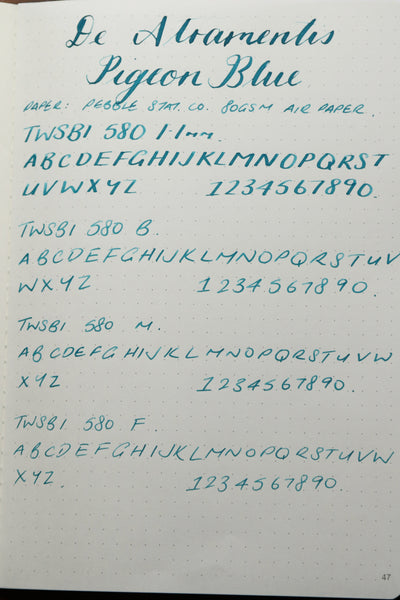 De Atramentis
Pigeon Blue
PAPER: PEBBLE STAT. CO. 80GSM AIR PAPER.
TWSBI 580 1.1mm
ABCDEFGHIJKLMNOPQRST
UVWXYZ 1234567890.
TWSBI 580 B.
ABCDEFGHIJKLMNOPQRSTUV
WXYZ 1234567890.
TWSBI 580 M.
ABCDEFGHIJKLMNOPQRSTUVW
XYZ 1234567890.
TWSBI 580 F.
ABCDEFGHIJKLMNOPQRSTUVW
XYZ. 1234567890.
47